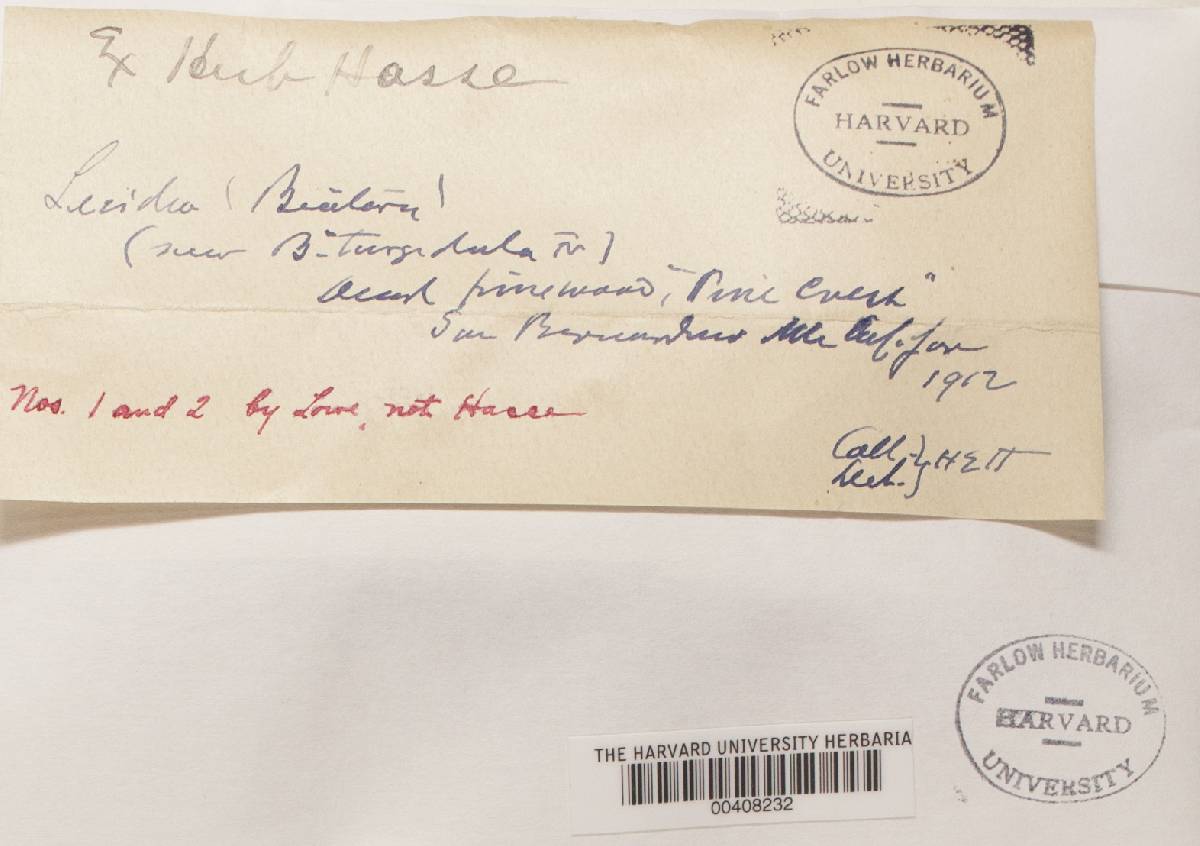 Ex Herb Hasse
FARLOW HERBARIUM
HARVARD
UNIVERSITY
Lecidea (Biatora)
(near B. turgidula Fr)
dead pinewood, "Pine Crest"
San Bernardino Mts Calif.
1912
Nos. 1 and 2 by Lowe, not Hasse
Coll.
Det. } HEH
FARLOW HERBARIUM
HARVARD
UNIVERSITY
THE HARVARD UNIVERSITY HERBARIA
00408232